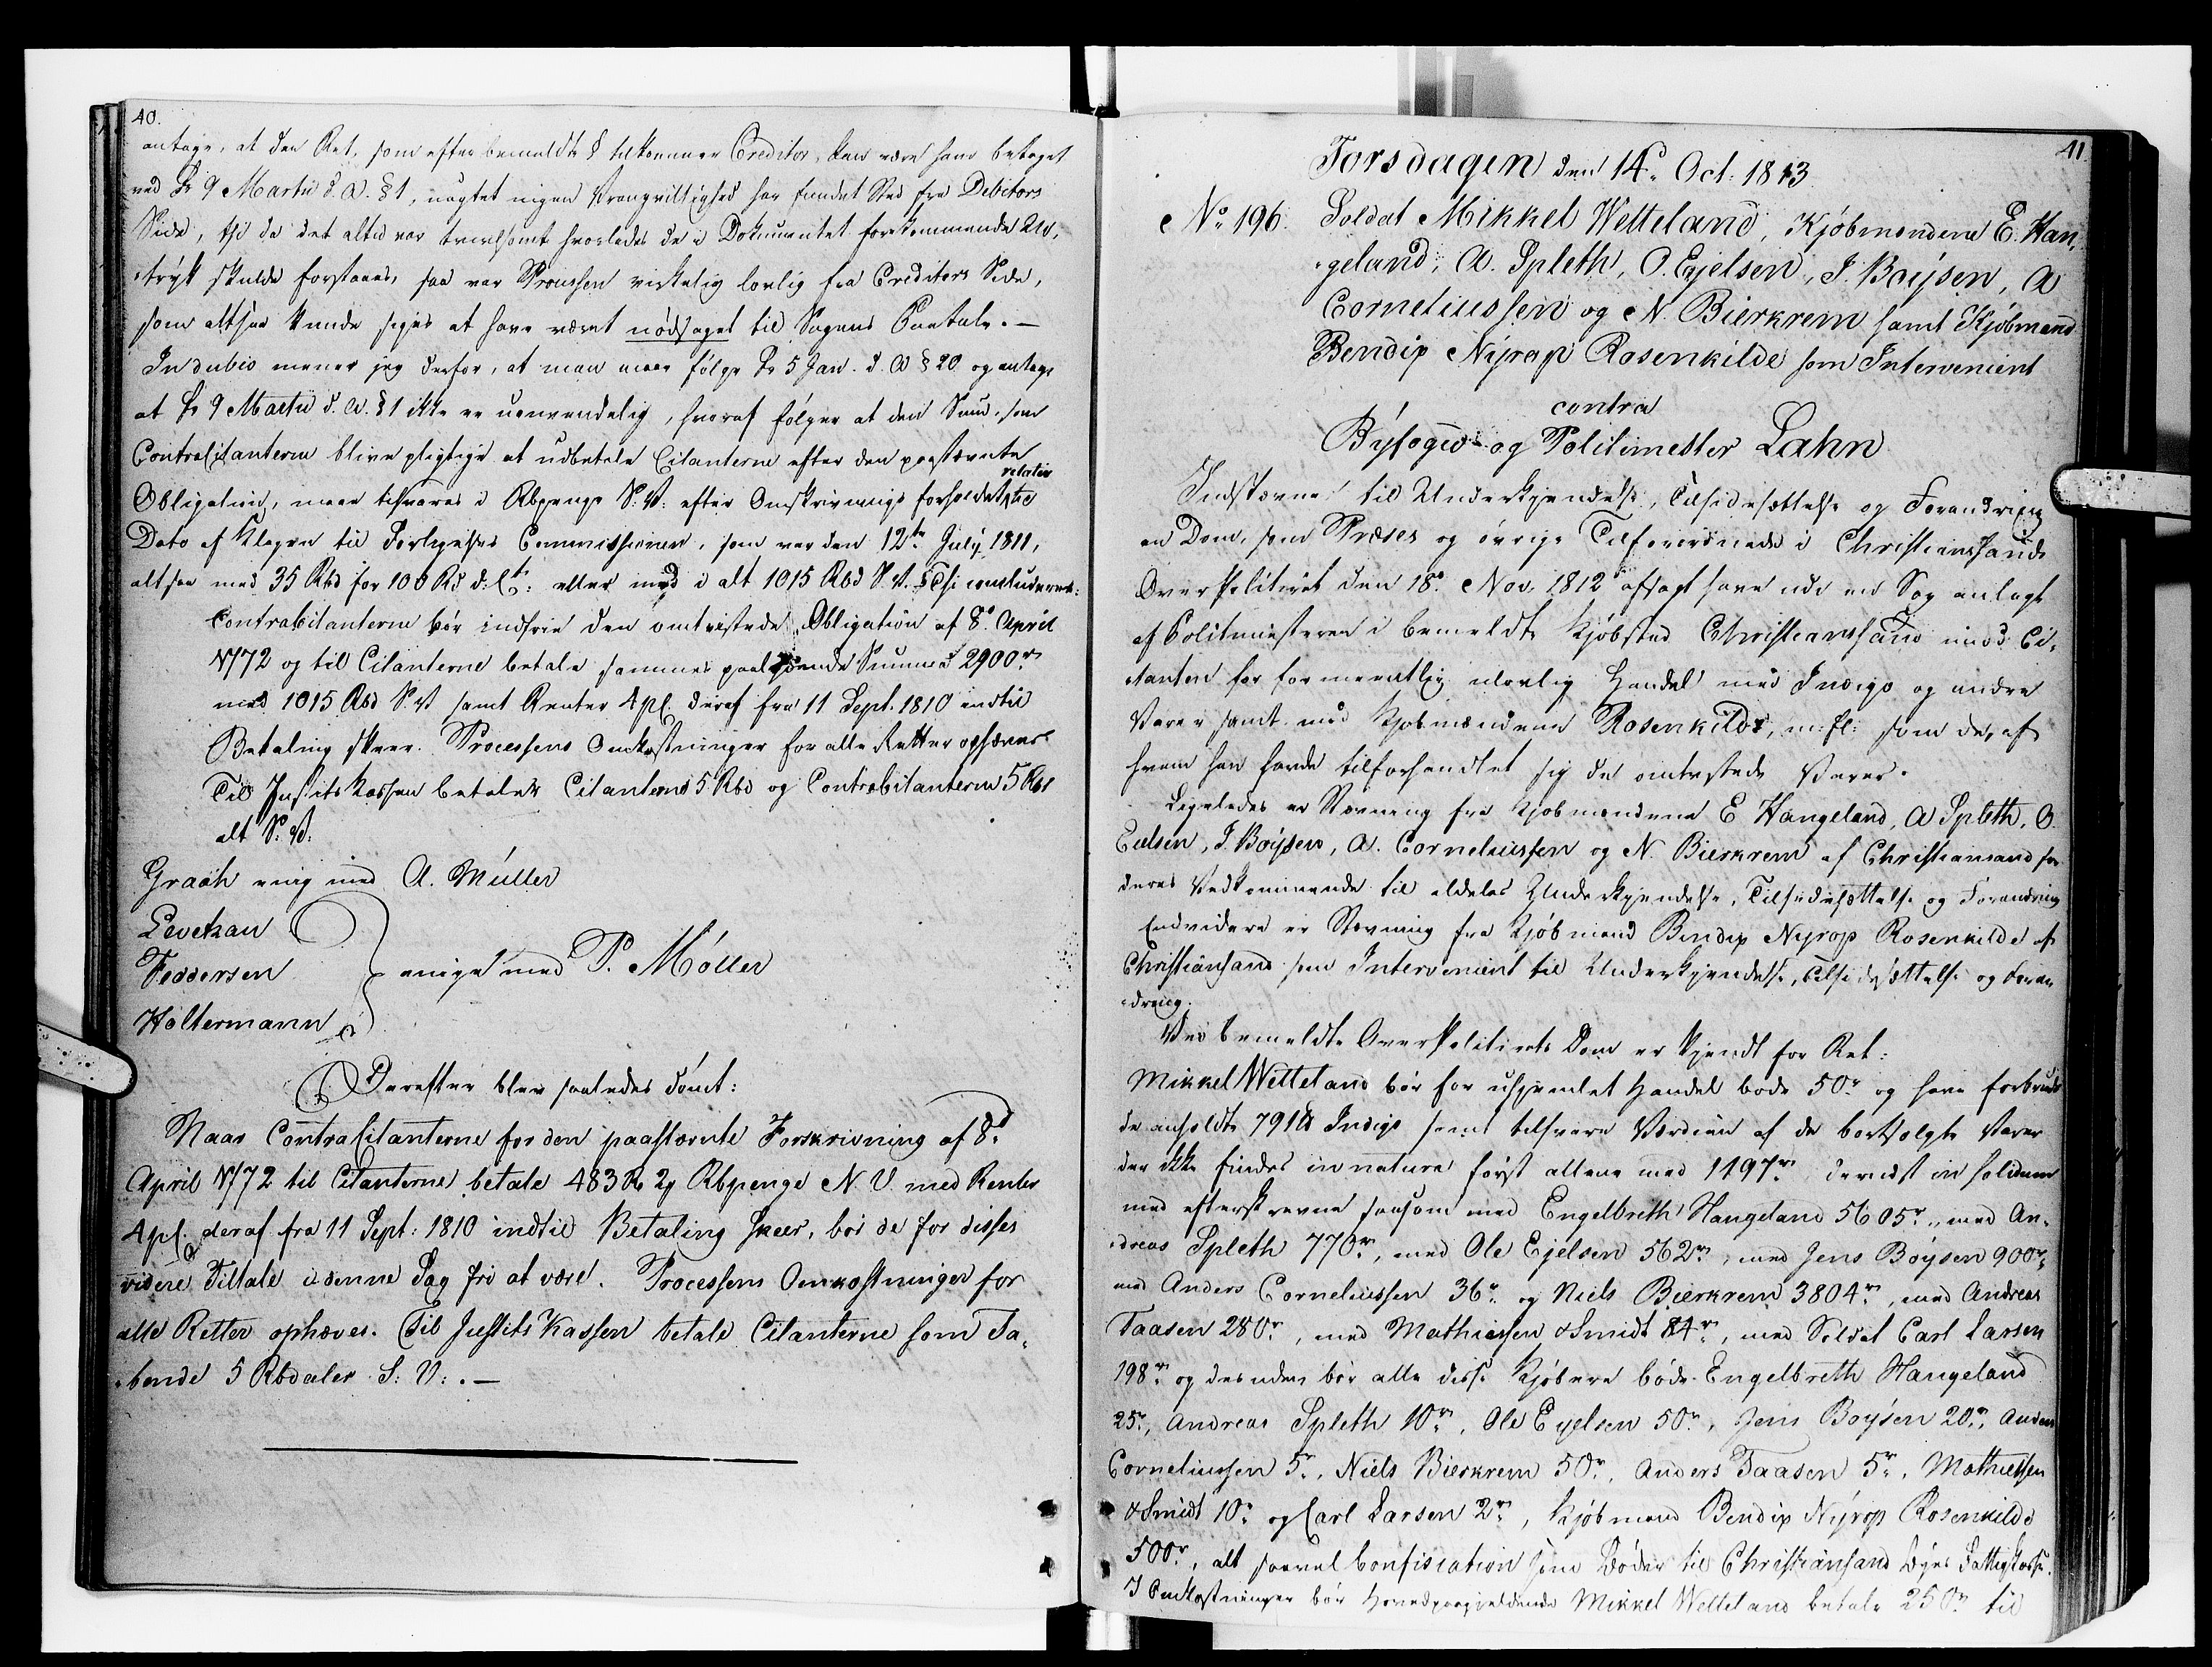 40.
antage, at den Ret, som efter bemeldte § tilkommer Creditor, kan være ham betaget
ved Fr 9 Martii d. A. § 1, uagtet ingen Vrangvillighed har fundet Sted fra Debitors
Side, thi da det altid var tvivlsomt hvorledes de i Dokumentet forekommende Ud-
tryk skulde forstaaes, saa var Processen virkelig lovlig fra Creditors Side,
som altsaa kunde siges at have været nödsaget til Sagens Paatale. —
In dubio mener jeg derfor, at man maae fölge Fr 5 Jan. d. A § 20 og antage
at Fr 9 Martii d. A. § 1 ikke er uanvendelig, hvoraf fölger at den Sum, som
Contracitanterne blive pligtige at udbetale Citanterne efter den paastævnte
Obligation, maae tilsvares i Rbpenge S. V. efter Omskrivnings forholdet relativ til
Dato af Klagen til Forligelses Commissionen, som var den 12te July 1811,
altsaa med 35 Rbd for 100 Rd d: Ct: eller med i alt 1015 Rbd S. V. Thi concluderes:
Contracitanterne bör indfrie den omtvistede Obligation af 8d April
1772 og til Citanterne betale sammes paalydende Summa 2900r
med 1015 Rbd S. V samt Renter 4 pCt. deraf fra 11 Sept. 1810 indtil
Betaling skeer. Processens Omkostninger for alle Retter ophæves.
Til Justitskassen betaler Citanterne 5 Rbd og Contracitanterne 5 Rbd
alt S. V.
Graah enig med A. Müller
Levetzau
Feddersen
enige med P. Möller
Holtermann
Derefter blev saaledes dömt:
Naar Contracitanterne for den paastævnte Forskrivning af 8d
April 1772 til Citanterne betale 483 R 2 Rbpenge N. V. med Renter
4 pC. deraf fra 11 Sept: 1810 indtil Betaling skeer, bör de for disses
videre Tiltale i denne Sag fri at være. Processens Omkostninger for
alle Retter ophæves. Til Justits Kassen betale Citanterne som Ta-
bende 5 Rbdaler S: V: . —
41.
Torsdagen den 14d Oct. 1813
No 196. Soldat Mikkel Wetteland, Kjöbmændene E. Han-
geland, A. Spleth, O. Ejelsen, J. Boÿsen, A
Corneliussen og N. Bierkrem samt Kjöbmand
Bendix Nÿrop Rosenkilde som Intervenient
contra
Bÿfoged- og Politimester Lahn
Indstævner til Underkjendelse, Tilsidesættelse og Forandring
en Dom, som Præses og övrige Tilforordnede i Christianssands
Overpolitiret den 18d Nov. 1812 afsagt have udi en Sag anlagt
af Politimesteren i bemeldte Kjöbsted Christianssand imod Ci-
tanten for formeentlig ulovlig Handel med Indigo og andre
Varer samt mod Kjöbmændene Rosenkilde, m: fl: som de, af
hvem han havde tilforhandlet sig de omtvistede Varer.
Ligeledes er Stævning fra Kjöbmændene E Hangeland, A Spleth, O.
Eielsen, J. Boÿsen, A. Corneliussen og N. Bierkrem af Christiansand for
deres Vedkommende til aldeles Underkjendelse, Tilsidesættelse og Forandring
Endvidere er Stævning fra Kjöbmand Bendix Nyrop Rosenkilde af
Christiansand som Intervenient til Underkjendelse, Tilsidesættelse og Foran-
dring.
Ved bemeldte Overpolitirets Dom er kjendt for Ret:
Mikkel Wetteland bör for uhjemlet Handel böde 50r og have forbrudt
de anholdte 791 ℔ Indigo samt tilsvare Værdien af de bortsolgte Varer
der ikke findes in natura först allene med 1197r dernæst in solidum
med efterskrevne saasom med Engelbreth Hangeland 5605r, med An-
dreas Spleth 770r, med Ole Ejelsen 562r, med Jens Boÿsen 900r,
med Anders Corneliussen 36r og Niels Bierkrem 3804r, med Andreas
Taasen 280r, med Mathiessen & Smidt 84r, med Soldat Carl Larsen
198r og desuden bör alle disse Kjöbere böde Engelbreth Hangeland
25r, Andreas Spleth 10r, Ole Eyelsen 50r, Jens Boÿsen 20r, Anders
Corneliussen 5r, Niels Bierkrem 50r, Anders Taasen 5r, Mathiessen
& Smidt 10r og Carl Larsen 2r, Kjöbmand Bendix Nÿrop Rosenkilde
500r, alt saavel Confiscation som Böder til Christiansand Byes Fattigkasse.
I Omkostninger bör Hovedpaagjældende Mikkel Wetteland betale 250r til